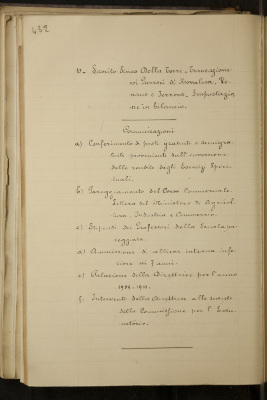 432
v- Lascito Principe Della Torre - Transazione
coi Parroci di Fromalura, Ve-
nano e Ferrone - Impostazio
ne in bilancio.
Comunicazioni
a) Conferimento di posti gratuiti e semigra-
tuiti provenienti dall'erogazione
delle rendite degli Esercizi Spiri-
tuali.
b) Pareggiamento del Corso Commerciale.
Lettera del Ministero di Agricol-
tura, Industria e Commercio.
c) Stipendi dei Professori della Scuola pa-
reggiata.
d) Ammissione di allieve interne infe-
riori ai 7 anni.
e) Relazione della Direttrice per l'anno
1909-1910.
f) Intervento della Direttrice alle sedute
della Commissione per l'Edu-
catorio.